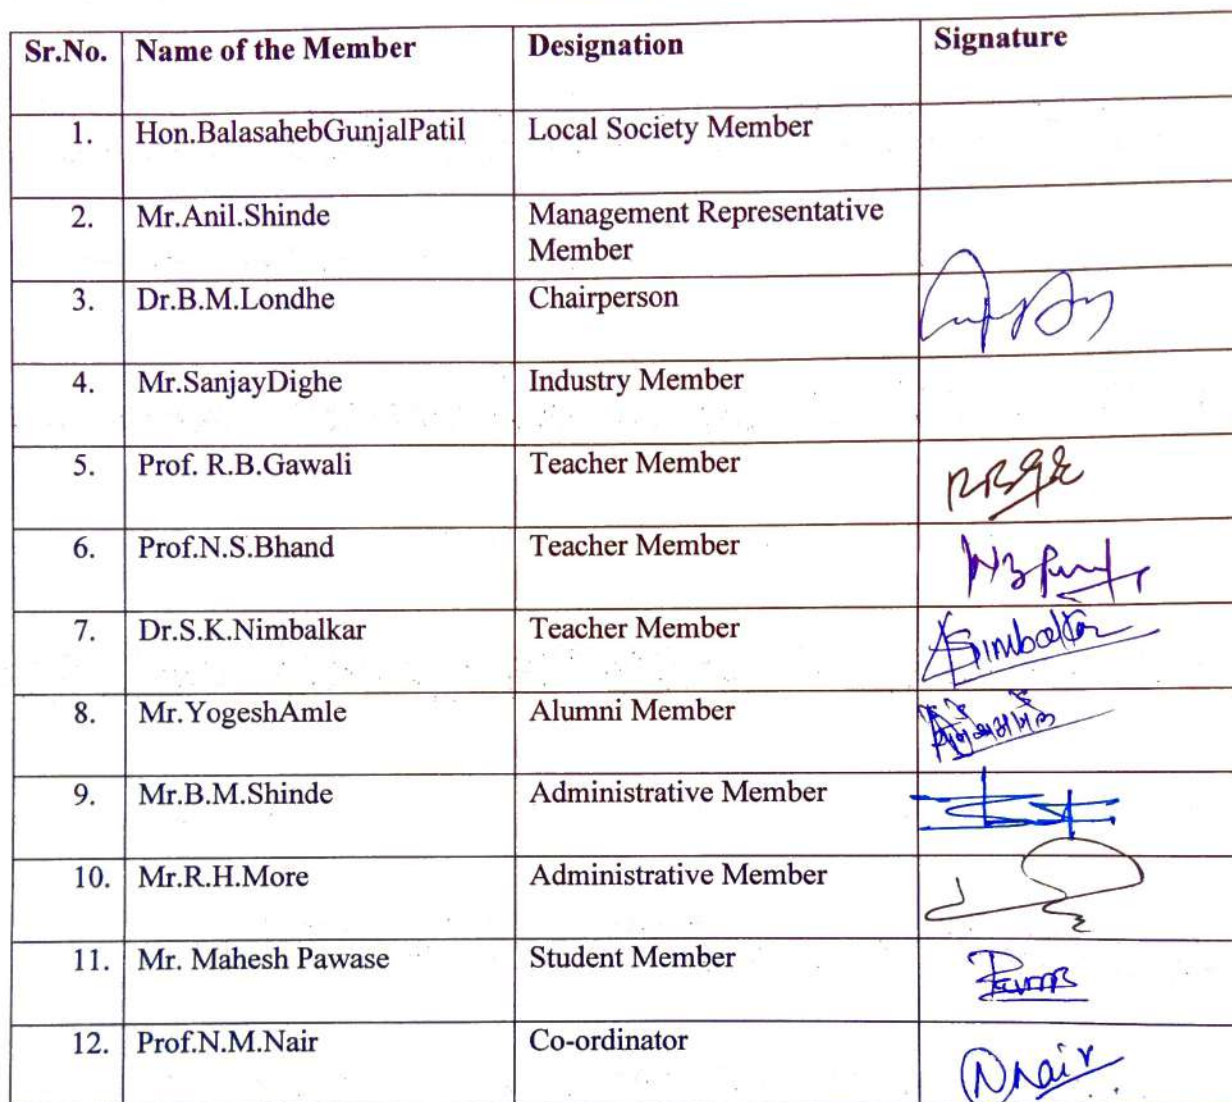 Sr.No. Name of the Member Designation Signature
1. Hon.BalasahebGunjalPatil Local Society Member
2. Mr.Anil.Shinde Management Representative
Member
3. Dr.B.M.Londhe Chairperson
4. Mr.SanjayDighe Industry Member
5. Prof. R.B.Gawali Teacher Member
6. Prof.N.S.Bhand Teacher Member
7. Dr.S.K.Nimbalkar Teacher Member
8. Mr.YogeshAmle Alumni Member
9. Mr.B.M.Shinde Administrative Member
10. Mr.R.H.More Administrative Member
11. Mr. Mahesh Pawase Student Member
12. Prof.N.M.Nair Co-ordinator NNair